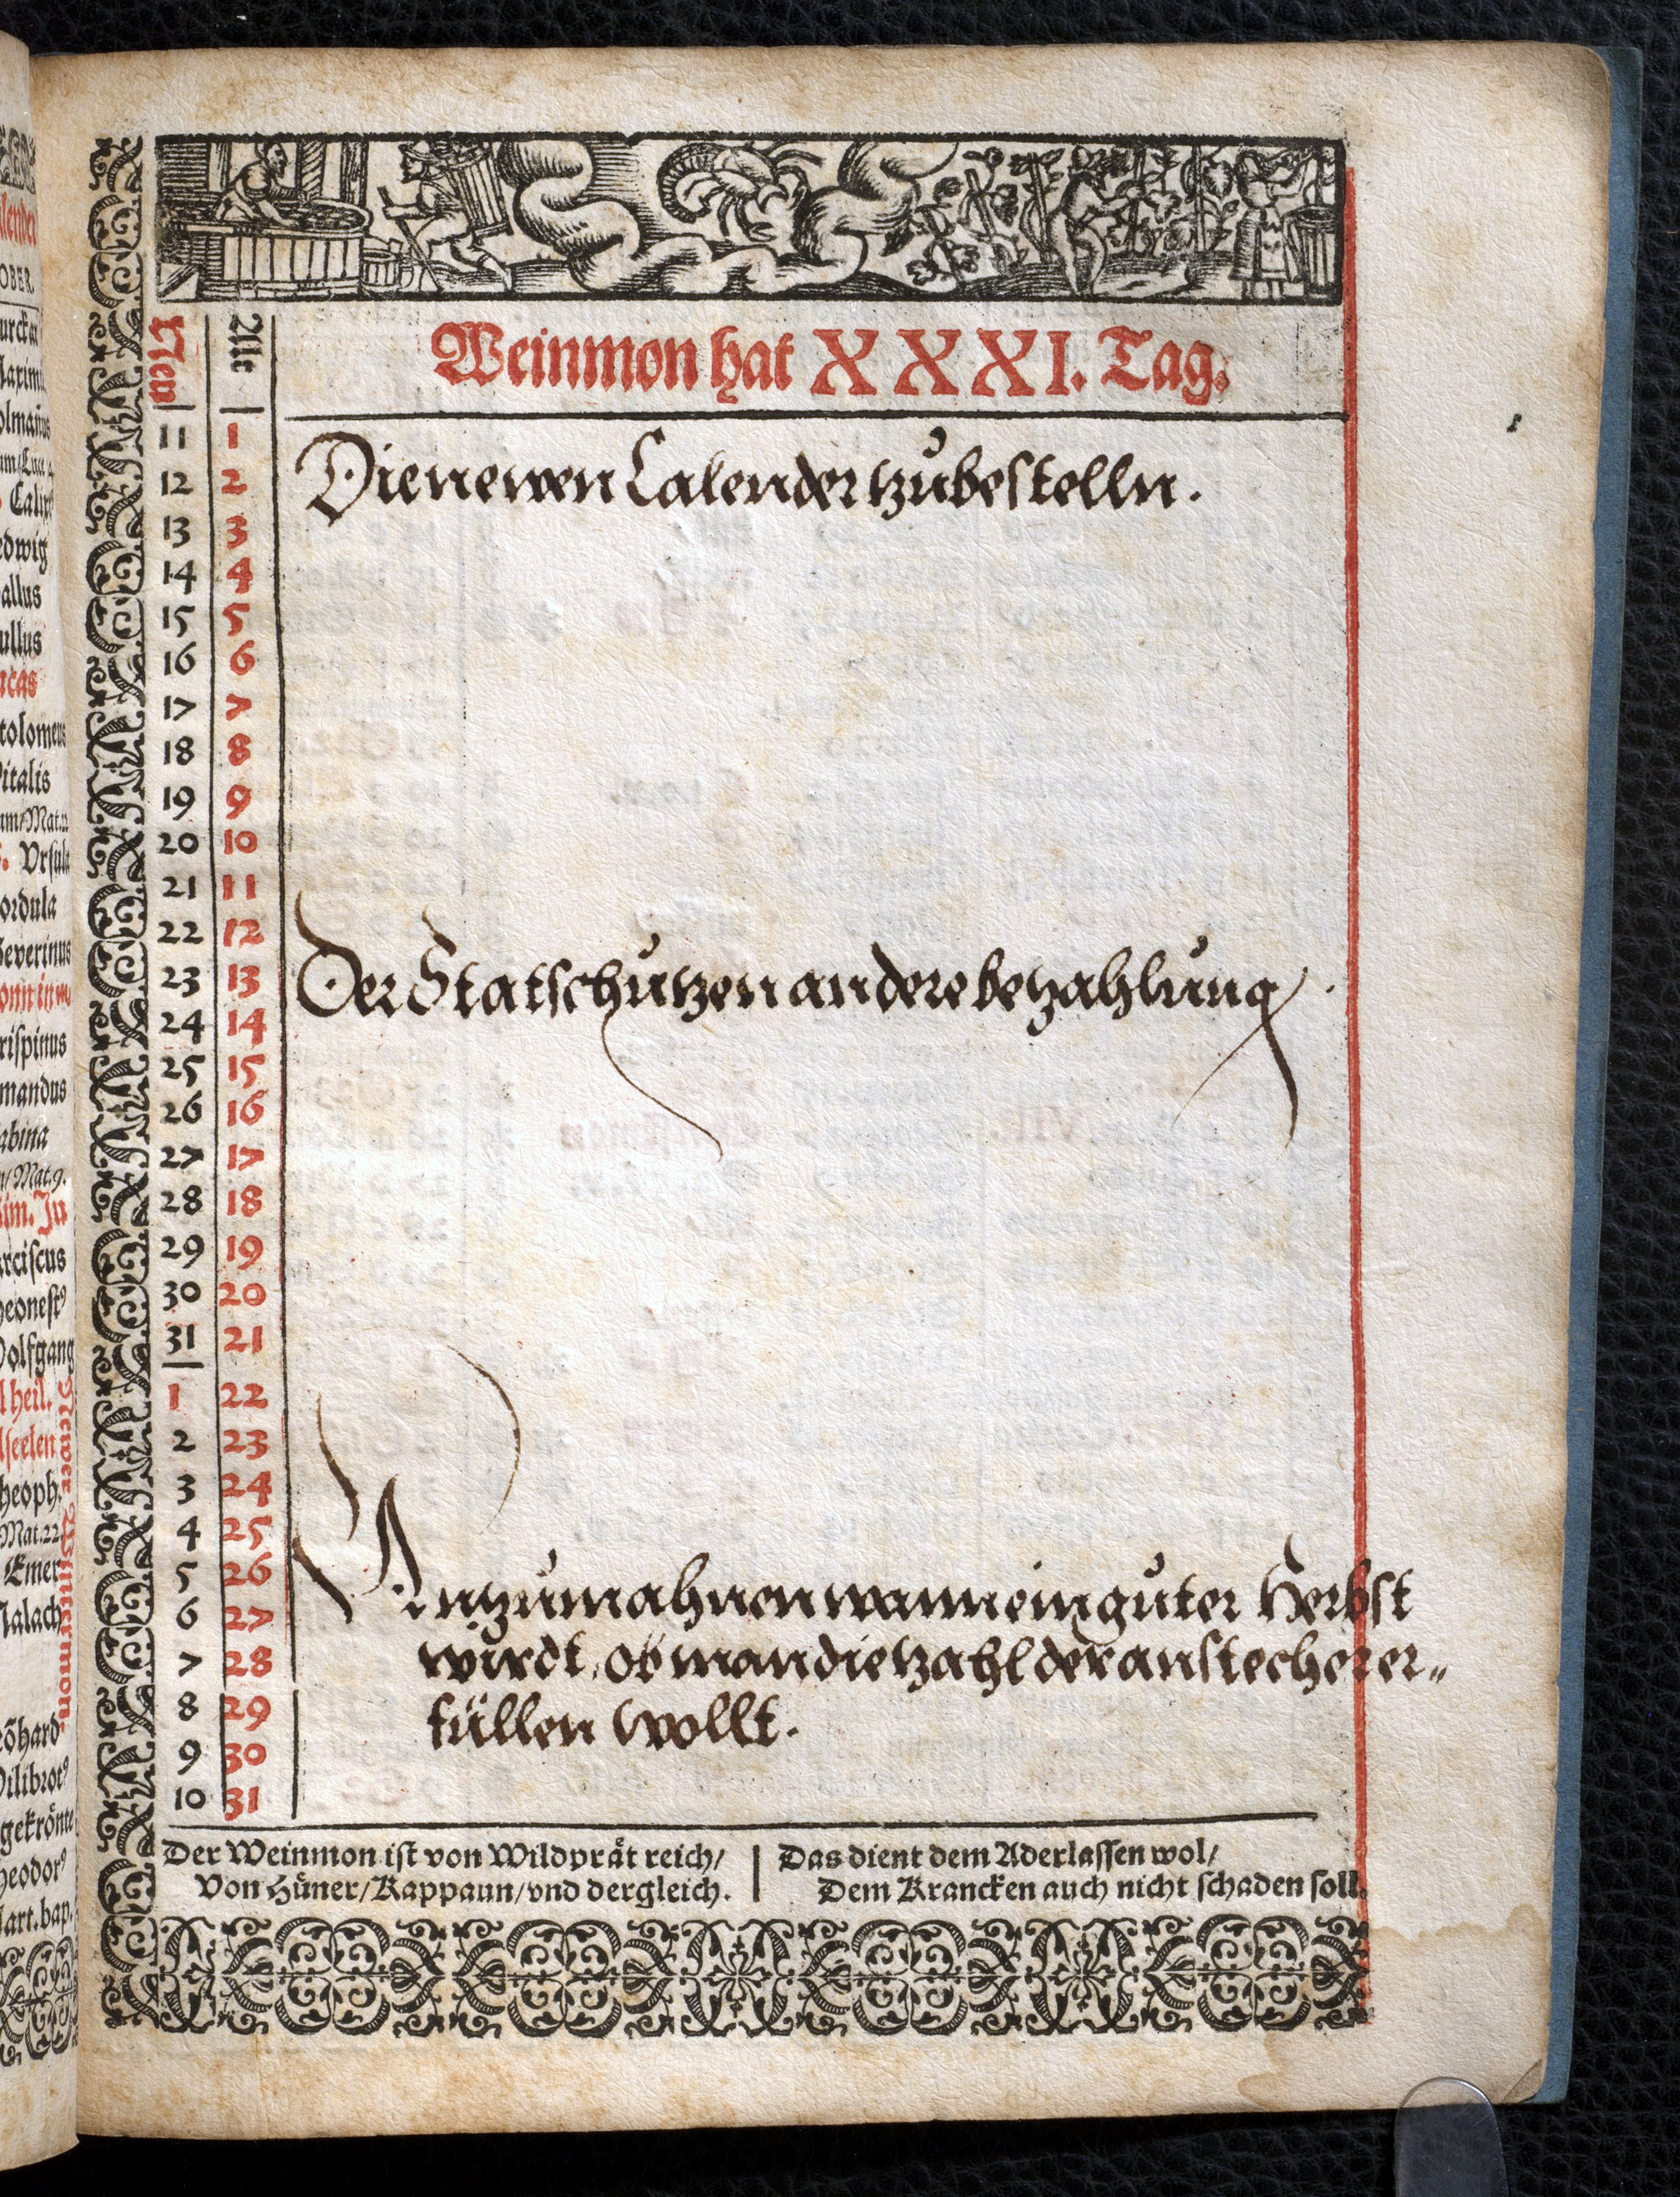 Weinmon hat XXXI. Tag.
New Alt
11 1
Die newen Calender tzubestelln.
12 2
13 3
14 4
15 5
16 6
17 7
18 8
19 9
20 10
21 11
22 12
Der Statschützen andere betzahlung.
23 13
24 14
25 15
26 16
27 17
28 18
29 19
30 20
31 21
1 22
2 23
3 24
4 25
5 26
Antzumahnen wann ein guter Herbst
6 27
wirdt, ob man die tzahl der anstecher er„
7 28
füllen wollt.
8 29
9 30
10 31
Der Weinmon ist von Wildprät reich/
Von Hüner/Kappaun/vnd dergleich.
Das dient dem Aderlassen wol/
Dem Krancken auch nicht schaden soll.
OBER.
allus
ullus
Vitalis
Vrsula
ordula
mandus
abina
Mat.9.
Wolfgang
heil.
Mat.22
Newer Wintermon.
gekrönte
art.bap.